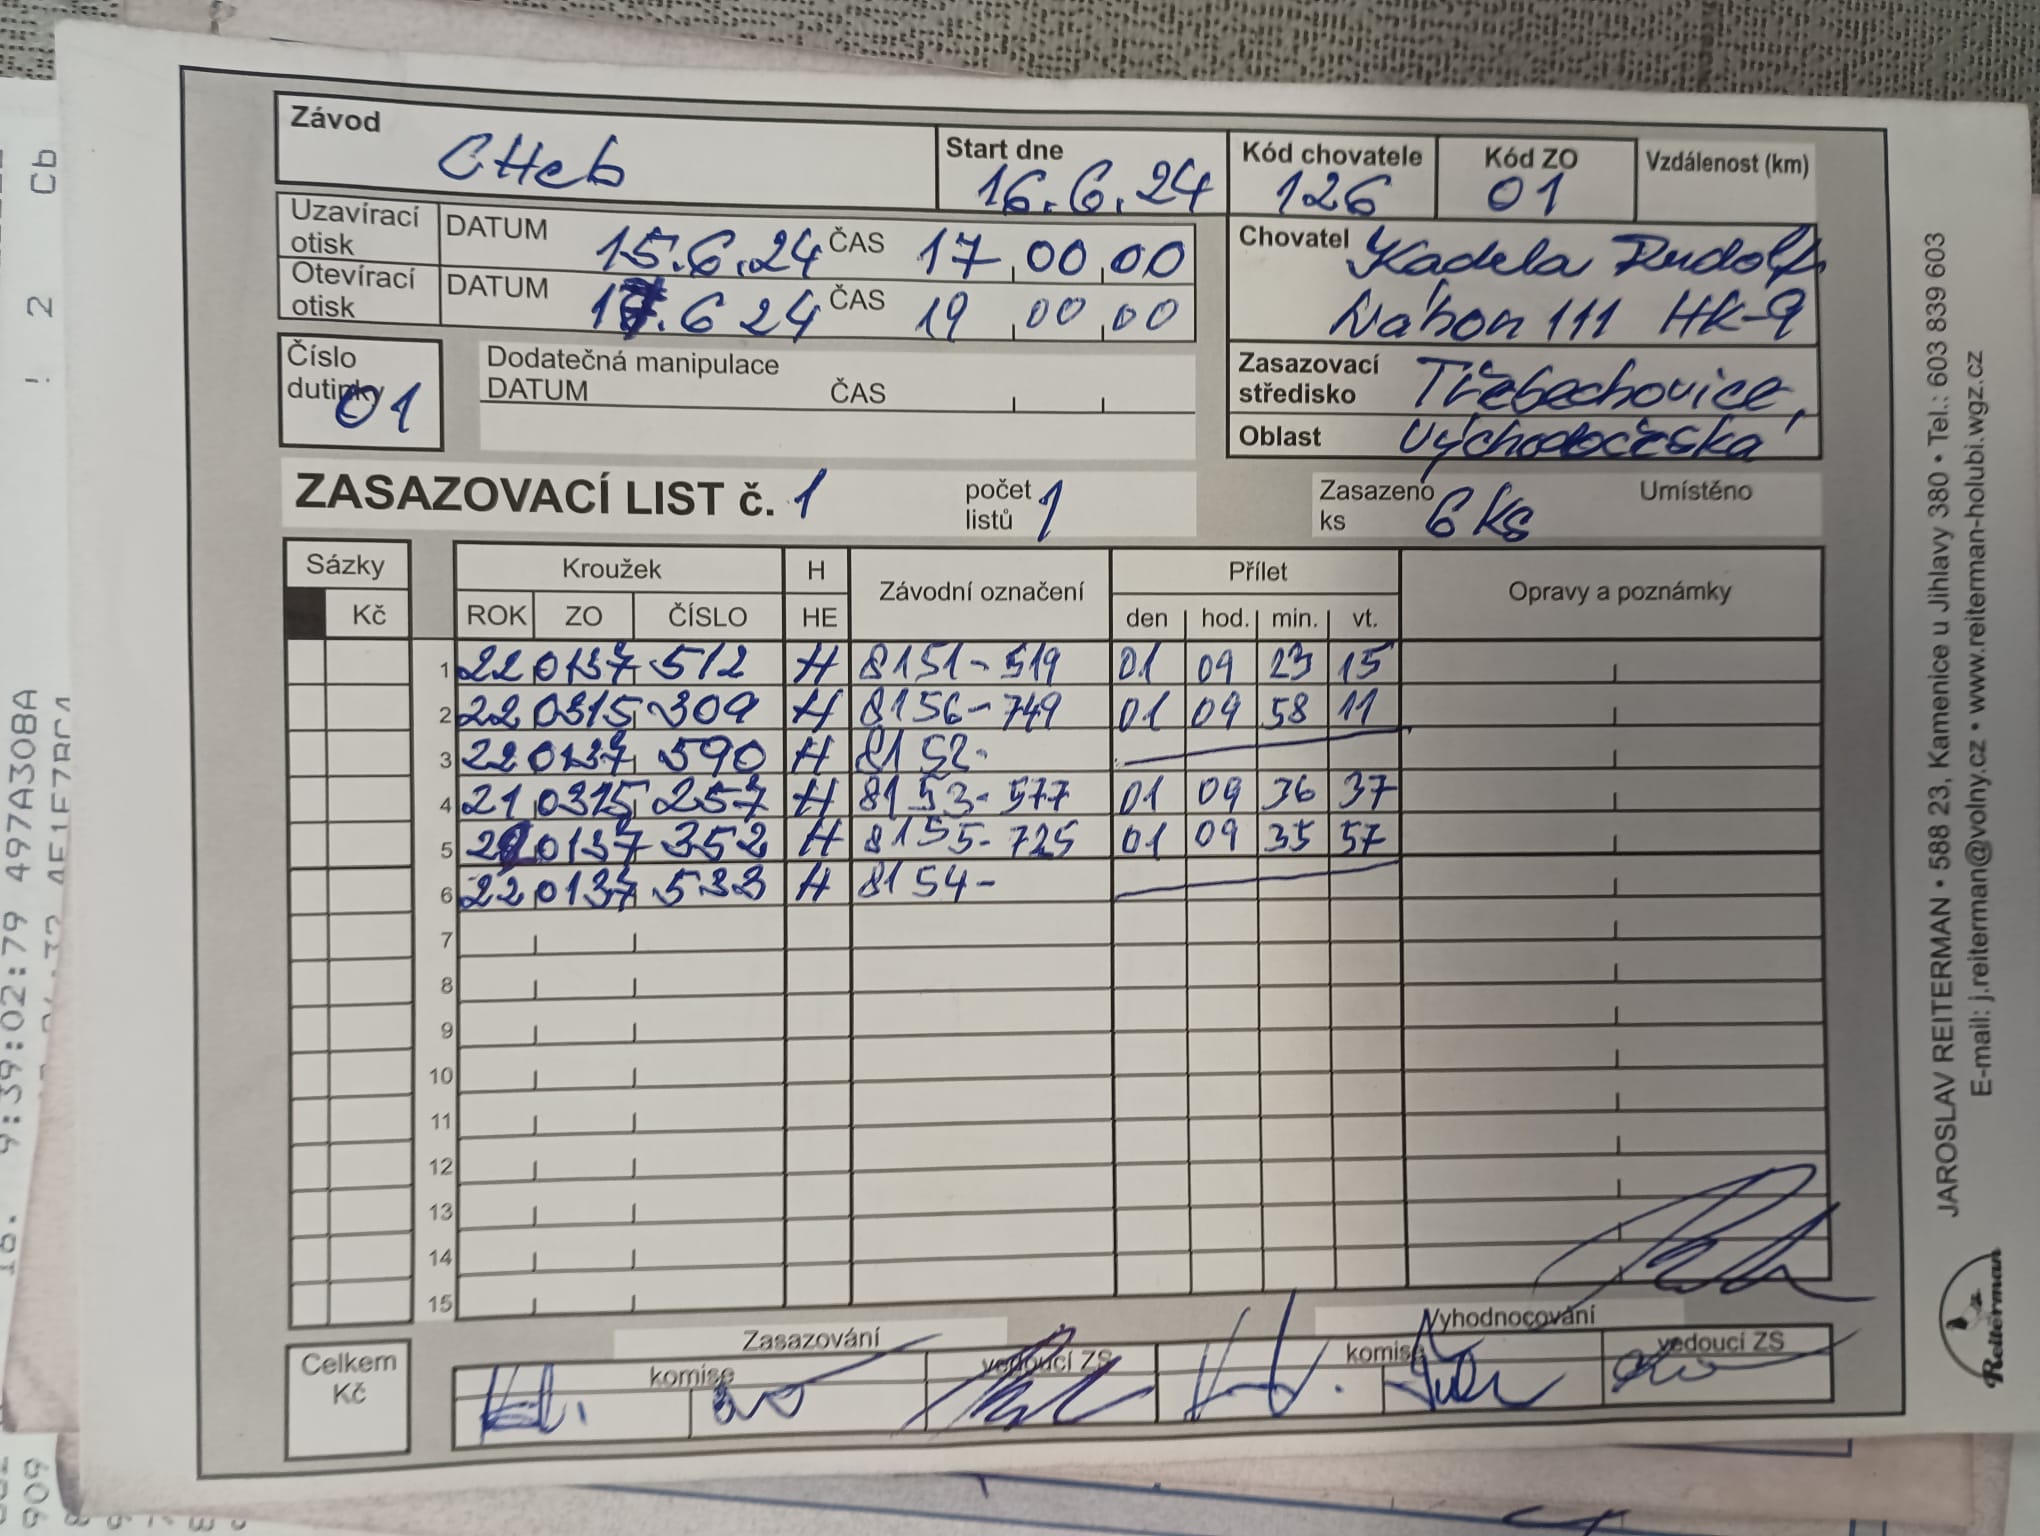 Závod CHeb
Start dne 16.6.24
Kód chovatele 126
Kód ZO 01
Vzdálenost (km)
Uzavírací otisk DATUM 15.6.24 ČAS 17 00 00
Otevírací otisk DATUM .6 24 ČAS 19 00 00
Chovatel Kadela Rudolf
111 HK-9
Číslo dutinky 01
Dodatečná manipulace
DATUM ČAS
Zasazovací středisko Třebechovice
Oblast Východočeská
ZASAZOVACÍ LIST č. 1
počet listů 1
Zasazeno ks 6 ks
Umístěno
Sázky Kroužek H Závodní označení Přílet Opravy a poznámky
Kč ROK ZO ČÍSLO HE den hod. min. vt.
1 22 0137 512 H 8151-519 01 09 23 15
2 22 0315 309 H 8156-749 01 09 58 11
3 22 0137 590 H 8152-
4 21 0315 257 H 8153-577 01 09 36 37
5 0137 352 H 8155-725 01 09 35 57
6 22 0137 533 H 8154-
7
8
9
10
11
12
13
14
15
Celkem Kč
Zasazování Vyhodnocování
komise vedoucí ZS komise vedoucí ZS
JAROSLAV REITERMAN • 588 23, Kamenice u Jihlavy 380 • Tel.: 603 839 603
E-mail: j.reiterman@volny.cz • www.reiterman-holubi.wgz.cz
Reiterman
! 2 Cb
9:39:02:79 497A30BA
909